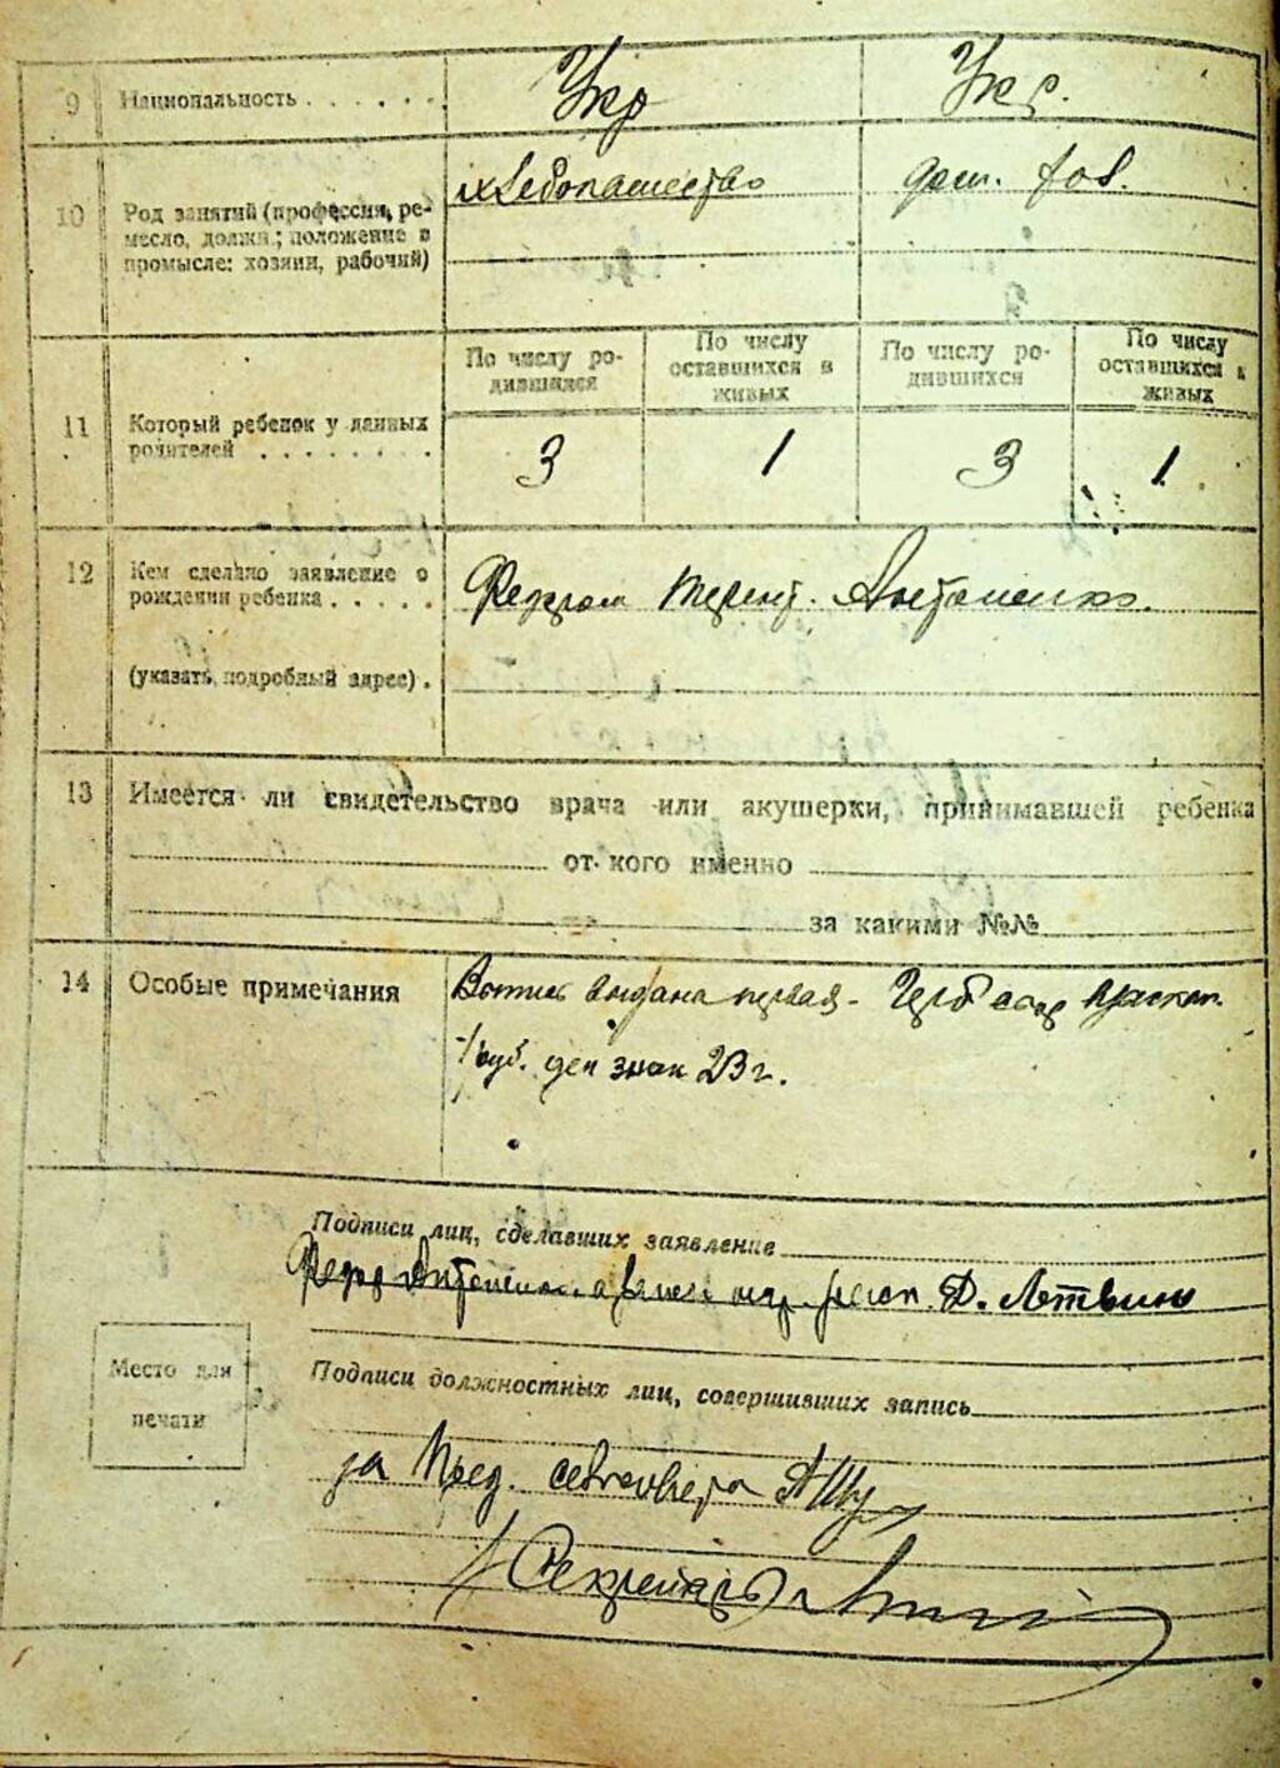 9 Национальность . . . . . . Укр Укр.
хлебопашество дом. хоз.
10 Род занятий (профессия, ре-
месло, должн.; положение в
промысле: хозяин, рабочий)
По числу ро-
дившихся
По числу
оставшихся в
живых
По числу ро-
дившихся
По числу
оставшихся в
живых
11 Который ребенок у данных
родителей . . . . . . . . 3 1 3 1
12 Кем сделано заявление о
рождении ребенка . . . . . Федором Терент. Антоненко.
(указать подробный адрес) .
13 Имеется ли свидетельство врача или акушерки, принимавшей ребенка
от кого именно
за какими №№
14 Особые примечания
выдана первая - Герб сбор
1 руб. ден знак 23 г.
Подписи лиц, сделавших заявление
Федор Антоненко, а Д. Литвин
Место для
печати
Подписи должностных лиц, совершивших запись
за Пред. сельсовета
Секретарь